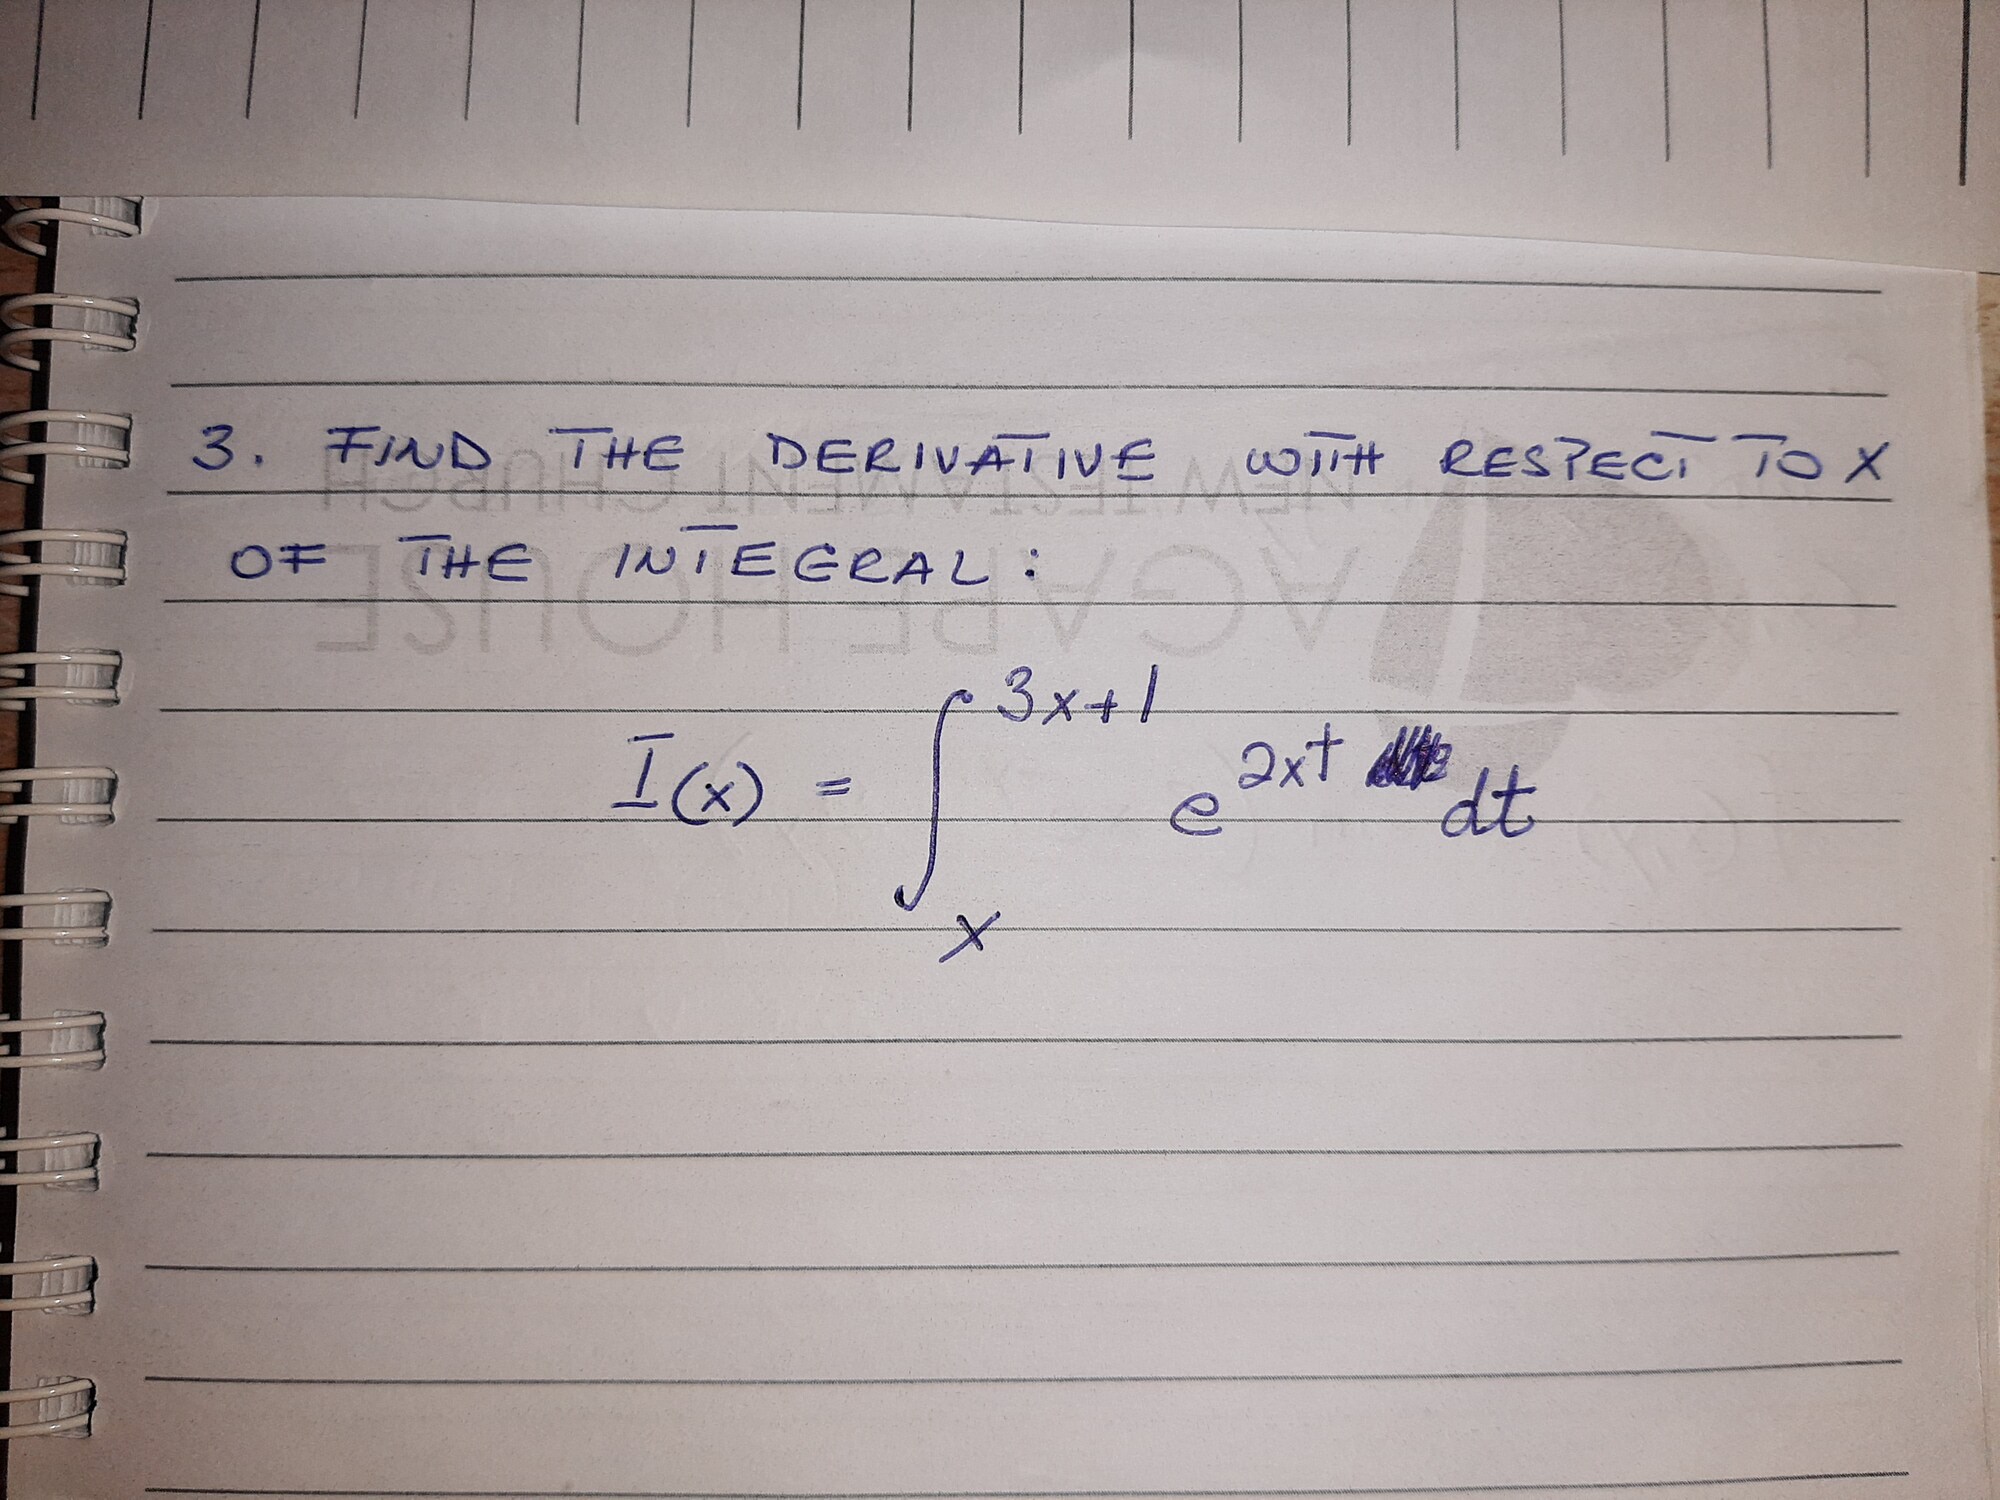 3. FIND THE DERIVATIVE WITH RESPECT TO X
OF THE INTEGRAL:
I(x) = ∫_x^{3x+1} e^{2xt} dt
NEW TESTAMENT CHURCH
AGAPE HOUSE